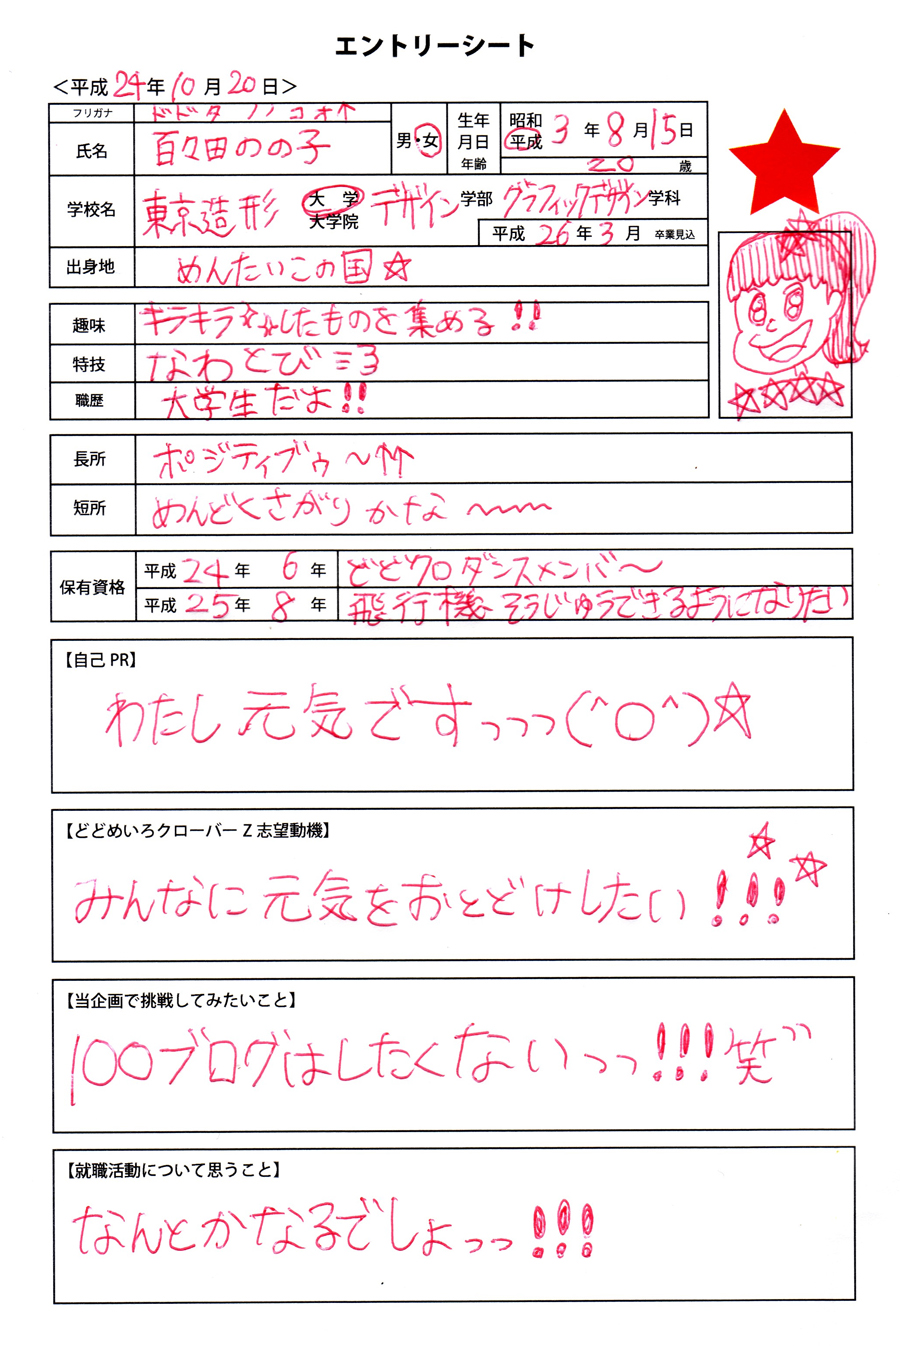 エントリーシート
＜平成24年10月20日＞
フリガナ ドドタ ノノコオ↑
氏名 百々田のの子 男・女 生年月日 年齢 昭和 平成 3年8月15日
20歳
学校名 東京造形 大学 大学院 デザイン学部 グラフィックデザイン学科
平成26年3月 卒業見込
出身地 めんたいこの国☆
趣味 キラキラ☆☆したものを集める!!
特技 なわとび三3
職歴 大学生だよ!!
長所 ポジティブゥ〜↑↑
短所 めんどくさがりかな〜〜〜
保有資格 平成24年6年 どどクロダンスメンバ〜
平成25年8年 飛行機そうじゅうできるようになりたい
【自己PR】
わたし元気ですっっっ(^○^)☆
【どどめいろクローバーZ志望動機】
みんなに元気をおとどけしたい!!!☆☆
【当企画で挑戦してみたいこと】
100ブログはしたくないっっ!!!笑"
【就職活動について思うこと】
なんとかなるでしょっっ!!!